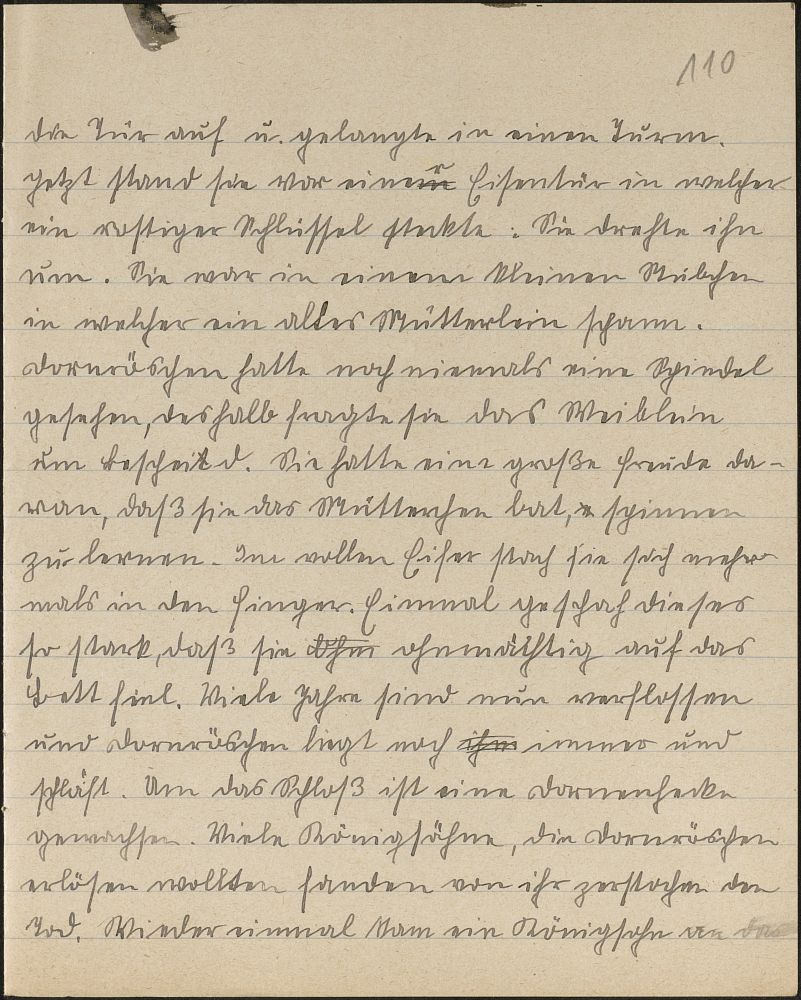 110
die Tür auf u. gelangte in einen Turm.
Jetzt stand sie vor einer Eisentür in welcher
ein rostiger Schlüssel steckte. Sie drehte ihn
um. Sie war in einem kleinen Stübchen
in welcher ein altes Mütterlein spann.
Dornröschen hatte noch niemals eine Spindel
gesehen, deshalb fragte sie das Weiblein
um bescheid. Sie hatte eine große Freude da-
ran, daß sie das Mütterchen bat, spinnen
zu lernen. Im vollen Eifer stach sie sich mehr-
mals in den Finger. Einmal geschah dieses
so stark, daß sie ohnmächtig auf das
Bett fiel. Viele Jahre sind nun verflossen
und Dornröschen liegt noch immer und
schläft. Um das Schloß ist eine Dornenhecke
gewachsen. Viele Königsöhne, die Dornröschen
erlösen wollten fanden von ihr zerstochen den
Tod. Wieder einmal kam ein Königsohn an das